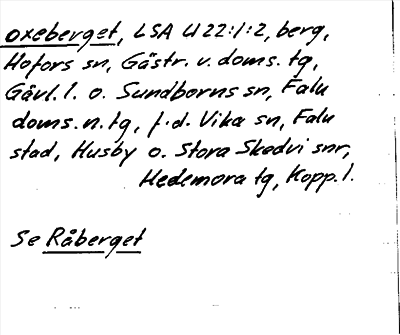 oxeberget, LSA U 22:1:2, berg,
Hofors sn, Gästr. v. doms. tg,
Gävl. l. o. Sundborns sn, Falu
doms. n. tg, f. d. Vika sn, Falu
stad, Husby o. Stora Skedvi snr,
Hedemora tg, Kopp. l.
Se Råberget